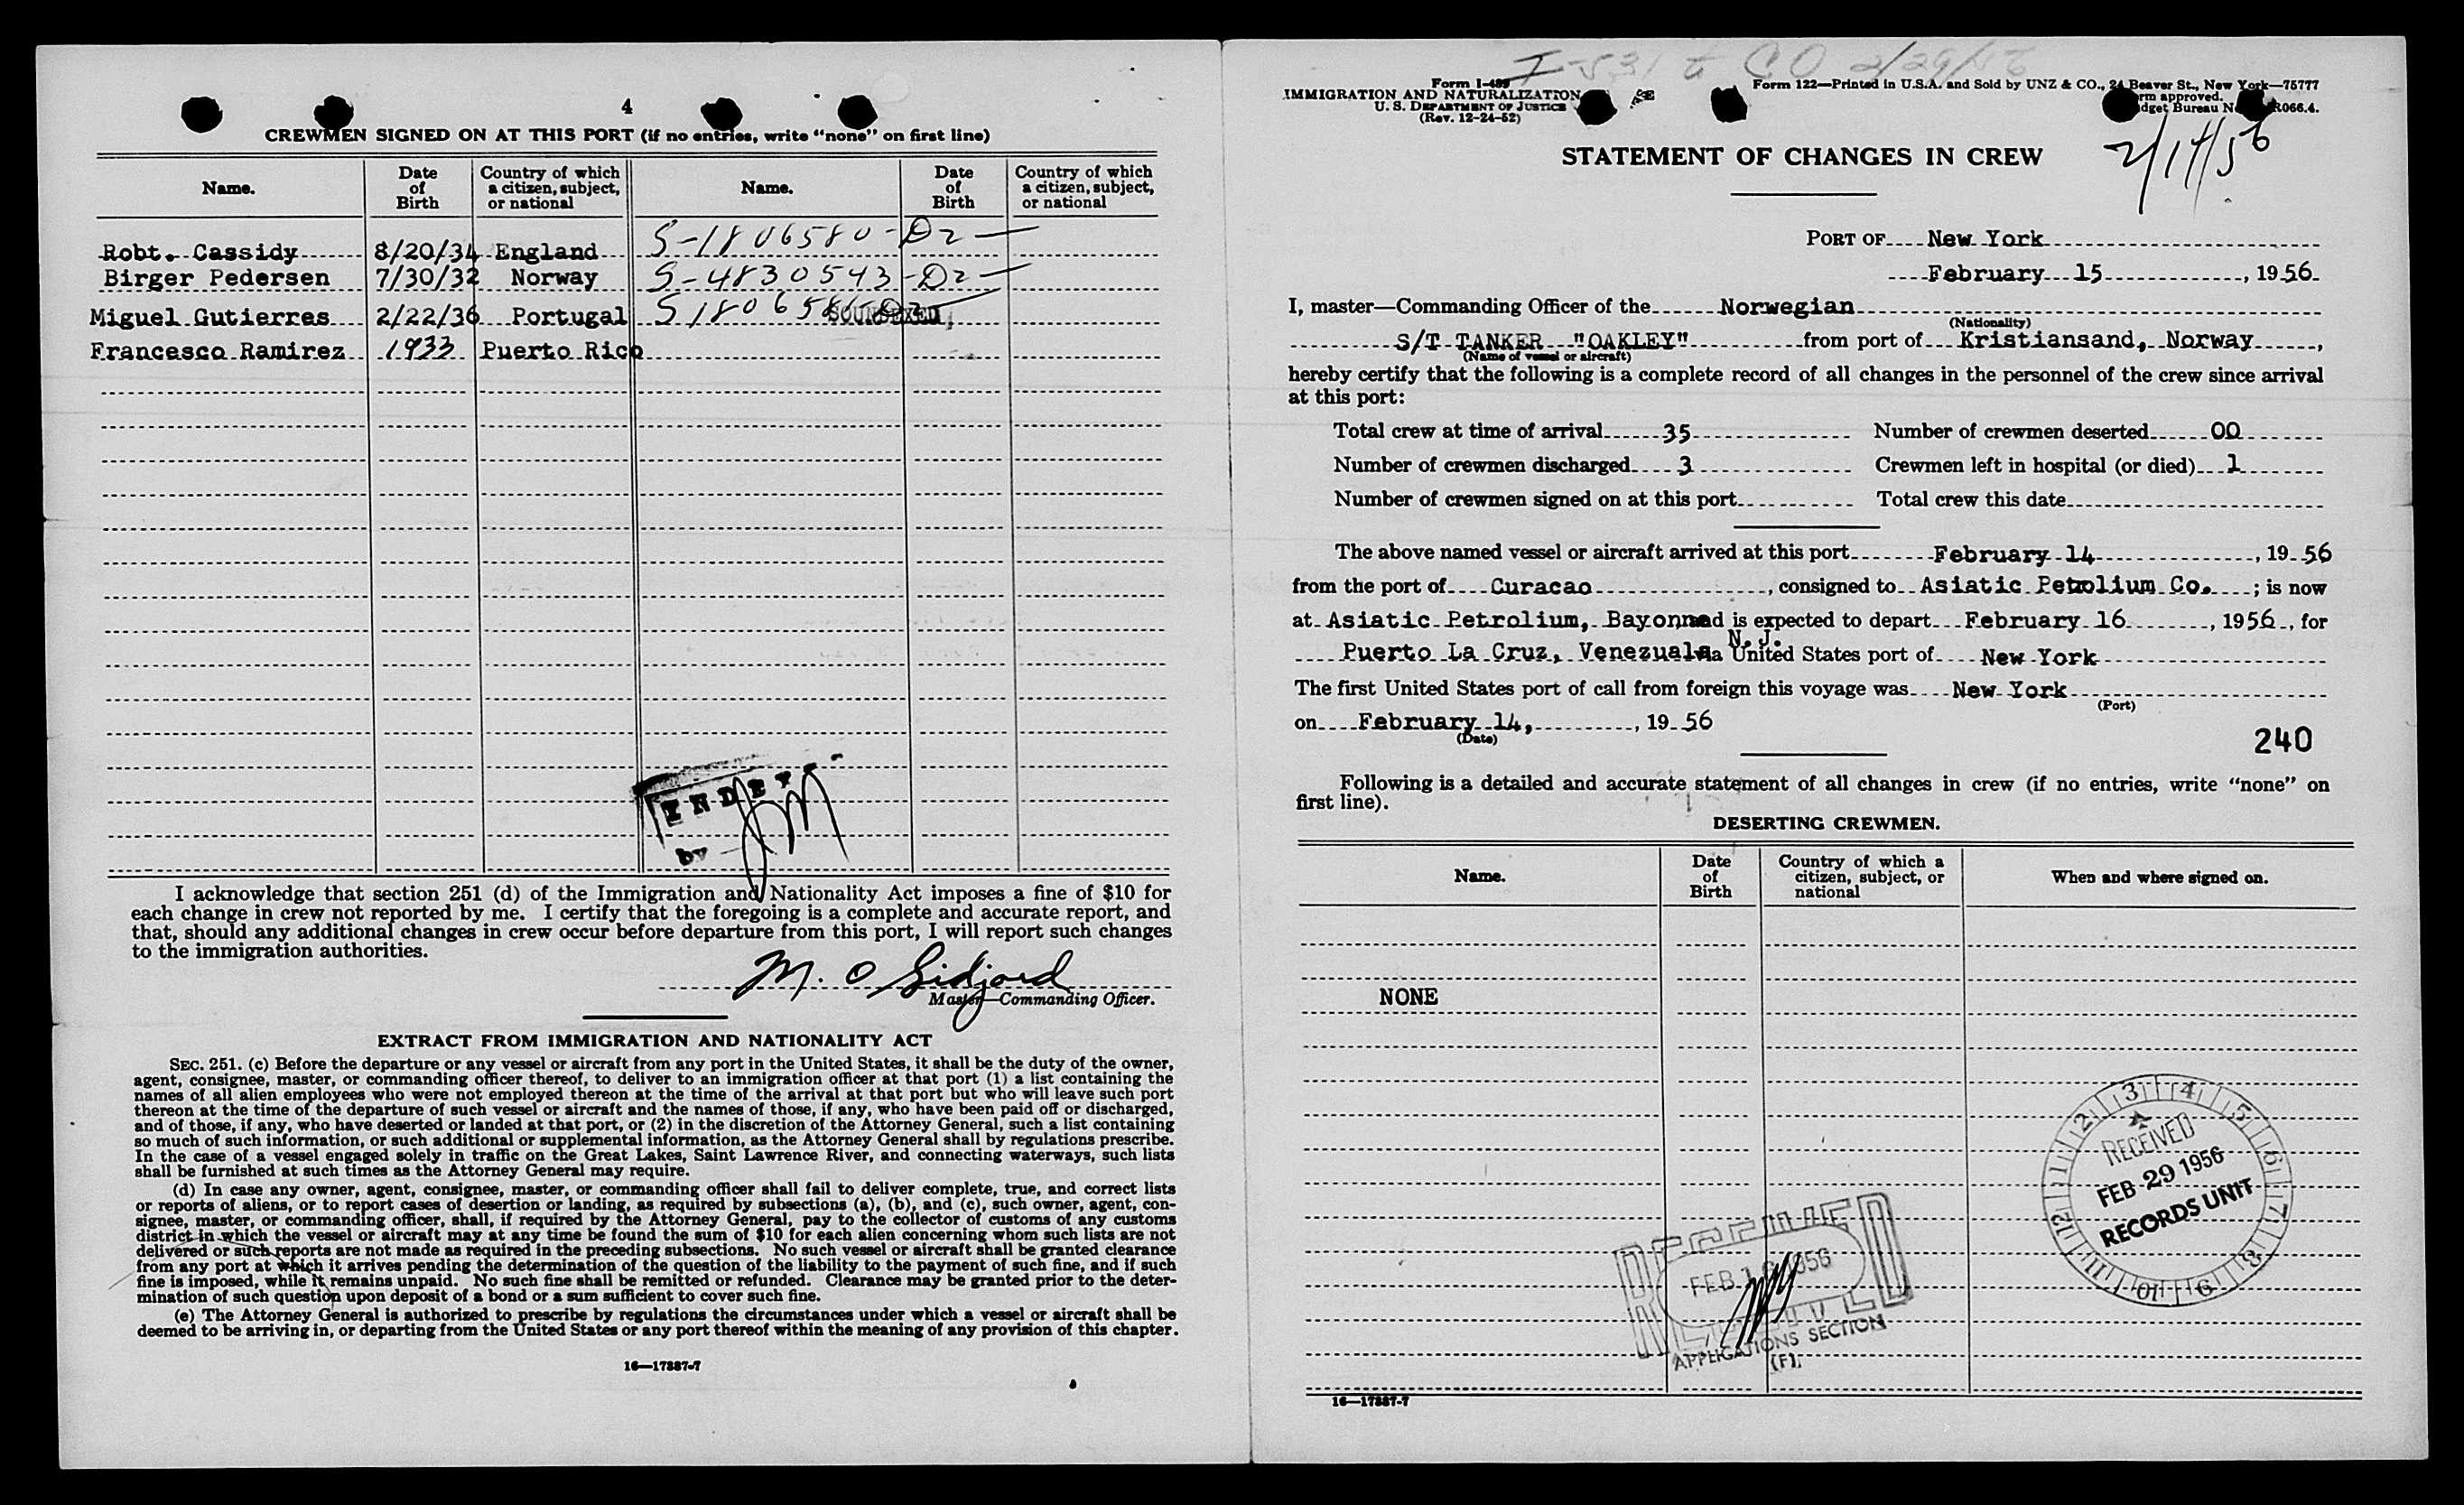 4
CREWMEN SIGNED ON AT THIS PORT (if no entries, write "none" on first line)
Name. Date of Birth Country of which a citizen, subject, or national Name. Date of Birth Country of which a citizen, subject, or national
Robt. Cassidy 8/20/34 England S-1806580-D2
Birger Pedersen 7/30/32 Norway S-4830543-D2
Miguel Gutierres 2/22/36 Portugal SOUNDEXED
Francesco Ramirez 1933 Puerto Rico
INDEX
by JM
I acknowledge that section 251 (d) of the Immigration and Nationality Act imposes a fine of $10 for
each change in crew not reported by me. I certify that the foregoing is a complete and accurate report, and
that, should any additional changes in crew occur before departure from this port, I will report such changes
to the immigration authorities.
M. O Gidjord
Master—Commanding Officer.
EXTRACT FROM IMMIGRATION AND NATIONALITY ACT
SEC. 251. (c) Before the departure or any vessel or aircraft from any port in the United States, it shall be the duty of the owner,
agent, consignee, master, or commanding officer thereof, to deliver to an immigration officer at that port (1) a list containing the
names of all alien employees who were not employed thereon at the time of the arrival at that port but who will leave such port
thereon at the time of the departure of such vessel or aircraft and the names of those, if any, who have been paid off or discharged,
and of those, if any, who have deserted or landed at that port, or (2) in the discretion of the Attorney General, such a list containing
so much of such information, or such additional or supplemental information, as the Attorney General shall by regulations prescribe.
In the case of a vessel engaged solely in traffic on the Great Lakes, Saint Lawrence River, and connecting waterways, such lists
shall be furnished at such times as the Attorney General may require.
(d) In case any owner, agent, consignee, master, or commanding officer shall fail to deliver complete, true, and correct lists
or reports of aliens, or to report cases of desertion or landing, as required by subsections (a), (b), and (c), such owner, agent, con-
signee, master, or commanding officer, shall, if required by the Attorney General, pay to the collector of customs of any customs
district in which the vessel or aircraft may at any time be found the sum of $10 for each alien concerning whom such lists are not
delivered or such reports are not made as required in the preceding subsections. No such vessel or aircraft shall be granted clearance
from any port at which it arrives pending the determination of the question of the liability to the payment of such fine, and if such
fine is imposed, while it remains unpaid. No such fine shall be remitted or refunded. Clearance may be granted prior to the deter-
mination of such question upon deposit of a bond or a sum sufficient to cover such fine.
(e) The Attorney General is authorized to prescribe by regulations the circumstances under which a vessel or aircraft shall be
deemed to be arriving in, or departing from the United States or any port thereof within the meaning of any provision of this chapter.
16—17887-7
I-531 t CO 2/29/56
Form I-489
IMMIGRATION AND NATURALIZATION
U. S. DEPARTMENT OF JUSTICE
(Rev. 12-24-52)
Form 122—Printed in U.S.A. and Sold by UNZ & CO., 24 Beaver St., New York—75777
rm approved.
dget Bureau N R066.4.
2/14/56
STATEMENT OF CHANGES IN CREW
PORT OF New York
February 15, 1956
I, master—Commanding Officer of the Norwegian
(Nationality)
S/T TANKER "OAKLEY" from port of Kristiansand, Norway,
(Name of vessel or aircraft)
hereby certify that the following is a complete record of all changes in the personnel of the crew since arrival
at this port:
Total crew at time of arrival 35 Number of crewmen deserted 00
Number of crewmen discharged 3 Crewmen left in hospital (or died) 1
Number of crewmen signed on at this port Total crew this date
The above named vessel or aircraft arrived at this port February 14, 1956
from the port of Curacao, consigned to Asiatic Petrolium Co.; is now
at Asiatic Petrolium, Bayonne d is expected to depart February 16, 1956, for
N. J.
Puerto La Cruz, Venezuala via United States port of New York
The first United States port of call from foreign this voyage was New York
(Port)
on February 14, 1956
(Date)
240
Following is a detailed and accurate statement of all changes in crew (if no entries, write "none" on
first line).
DESERTING CREWMEN.
Name. Date of Birth Country of which a citizen, subject, or national When and where signed on.
NONE
RECEIVED
FEB 29 1956
RECORDS UNIT
1 2 3 4 5 6 7 8 9 10 11 12
RECEIVED
FEB 1 1956
APPLICATIONS SECTION
(F)
16—17887-7